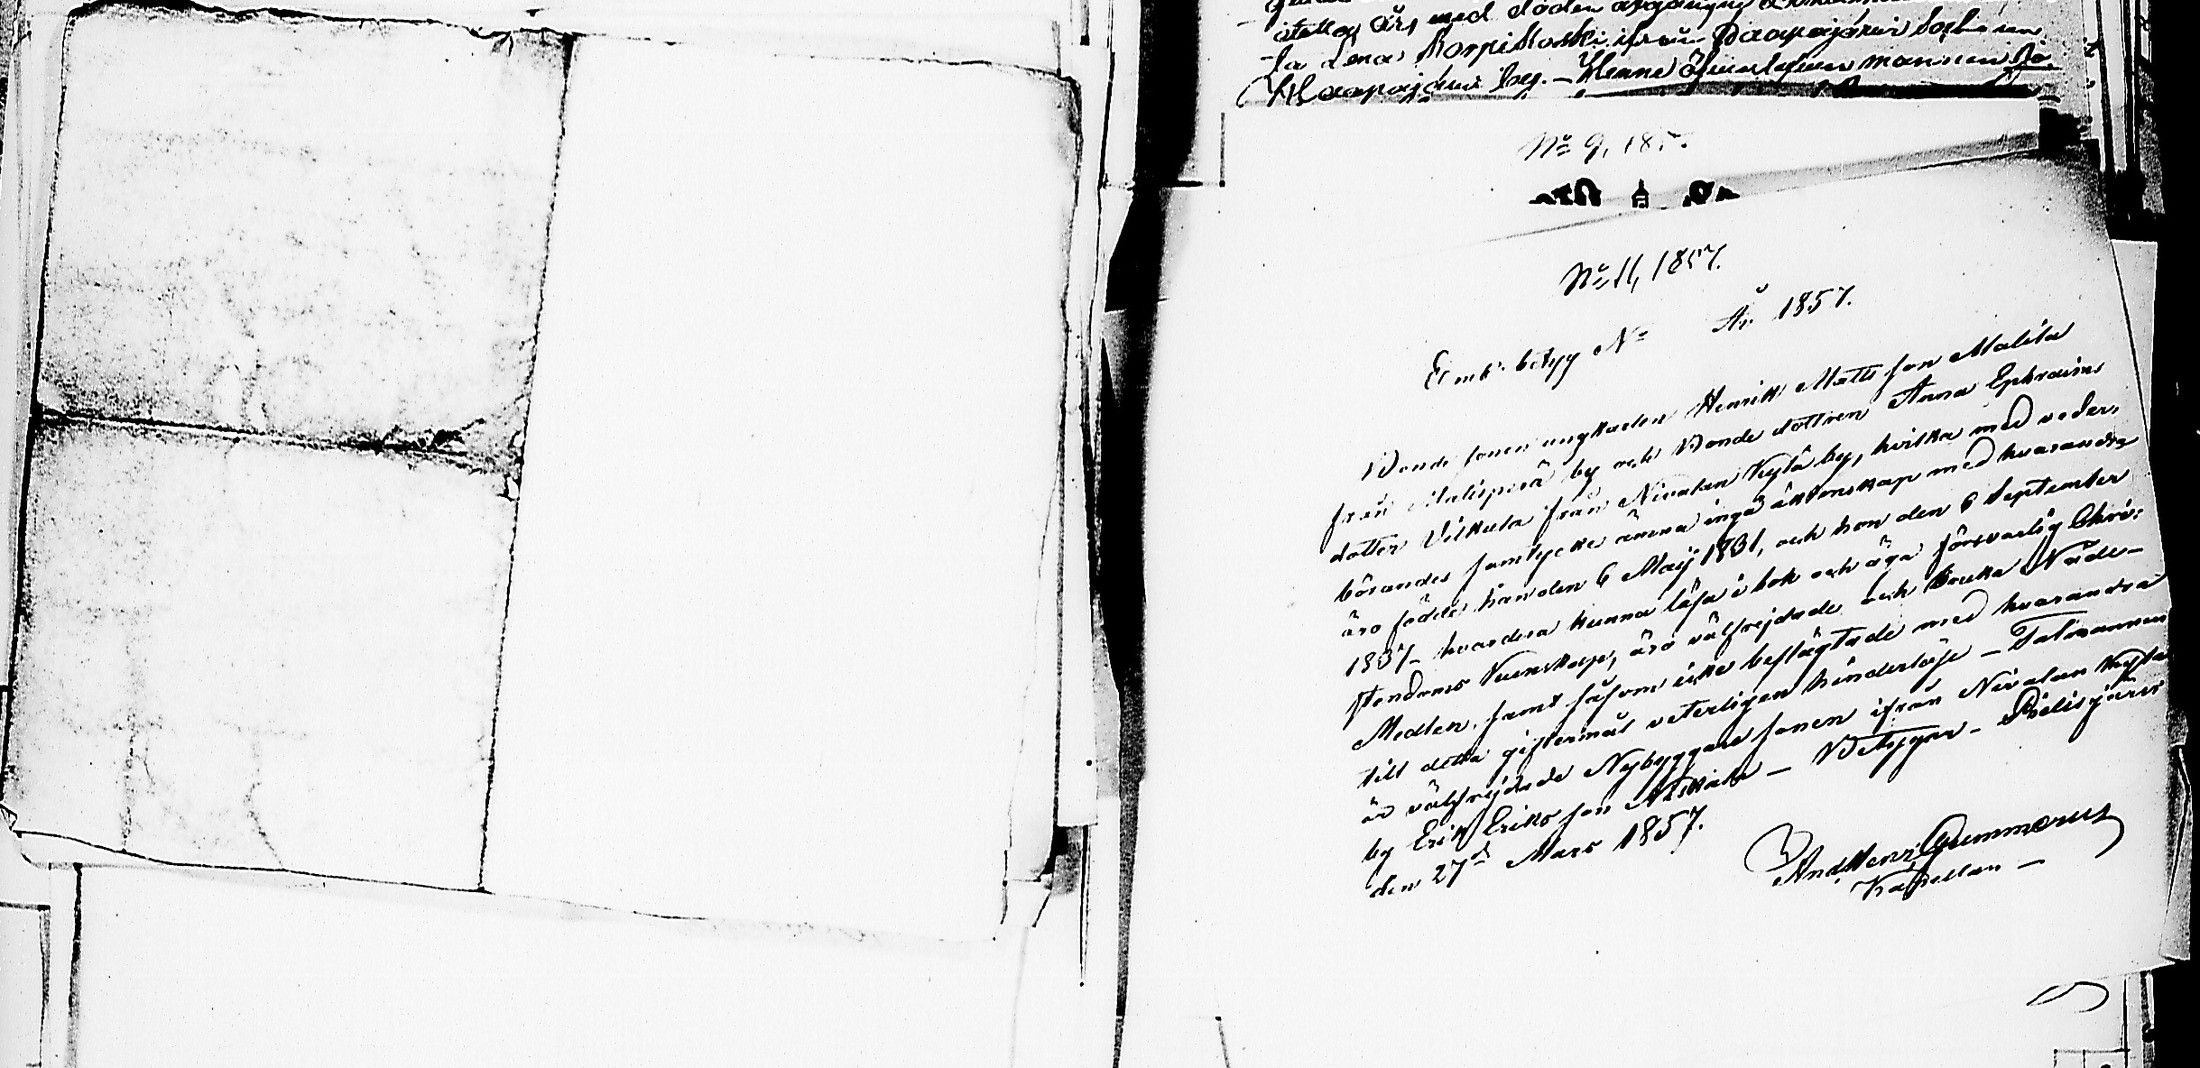 med döden
Haapajärvi by. — Henne
No 9, 185
No 11, 1857.
Emb: betyg No År 1857.
Bonde sonen ungkarlen Henrik Matts son Malila
från by och Bonde dottren Anna Ephraims
dotter Vilkula från Nivalan Kylä by, hvilka med veder-
börandes samtycke ämna ingå äktenskap med hvarandra
äro födde: han den 6 Maij 1831, och hon den 6 September
1837 hvardera kunna läsa i bok och äga försvarlig Chri-
stendoms Kunskap, äro välfrejdade och bruka Nåde-
Medlen, samt såsom icke beslägtade med hvarandra
till detta giftermål veterligen hinderlöse — Talmannen
är välfrejdade Nybyggare sonen ifrån Nivalan Kylä
by Erik Eriks son — Betygar — Pielisjärvi
den 27de Mars 1857.
And Henr Gummerus
Kapellan —